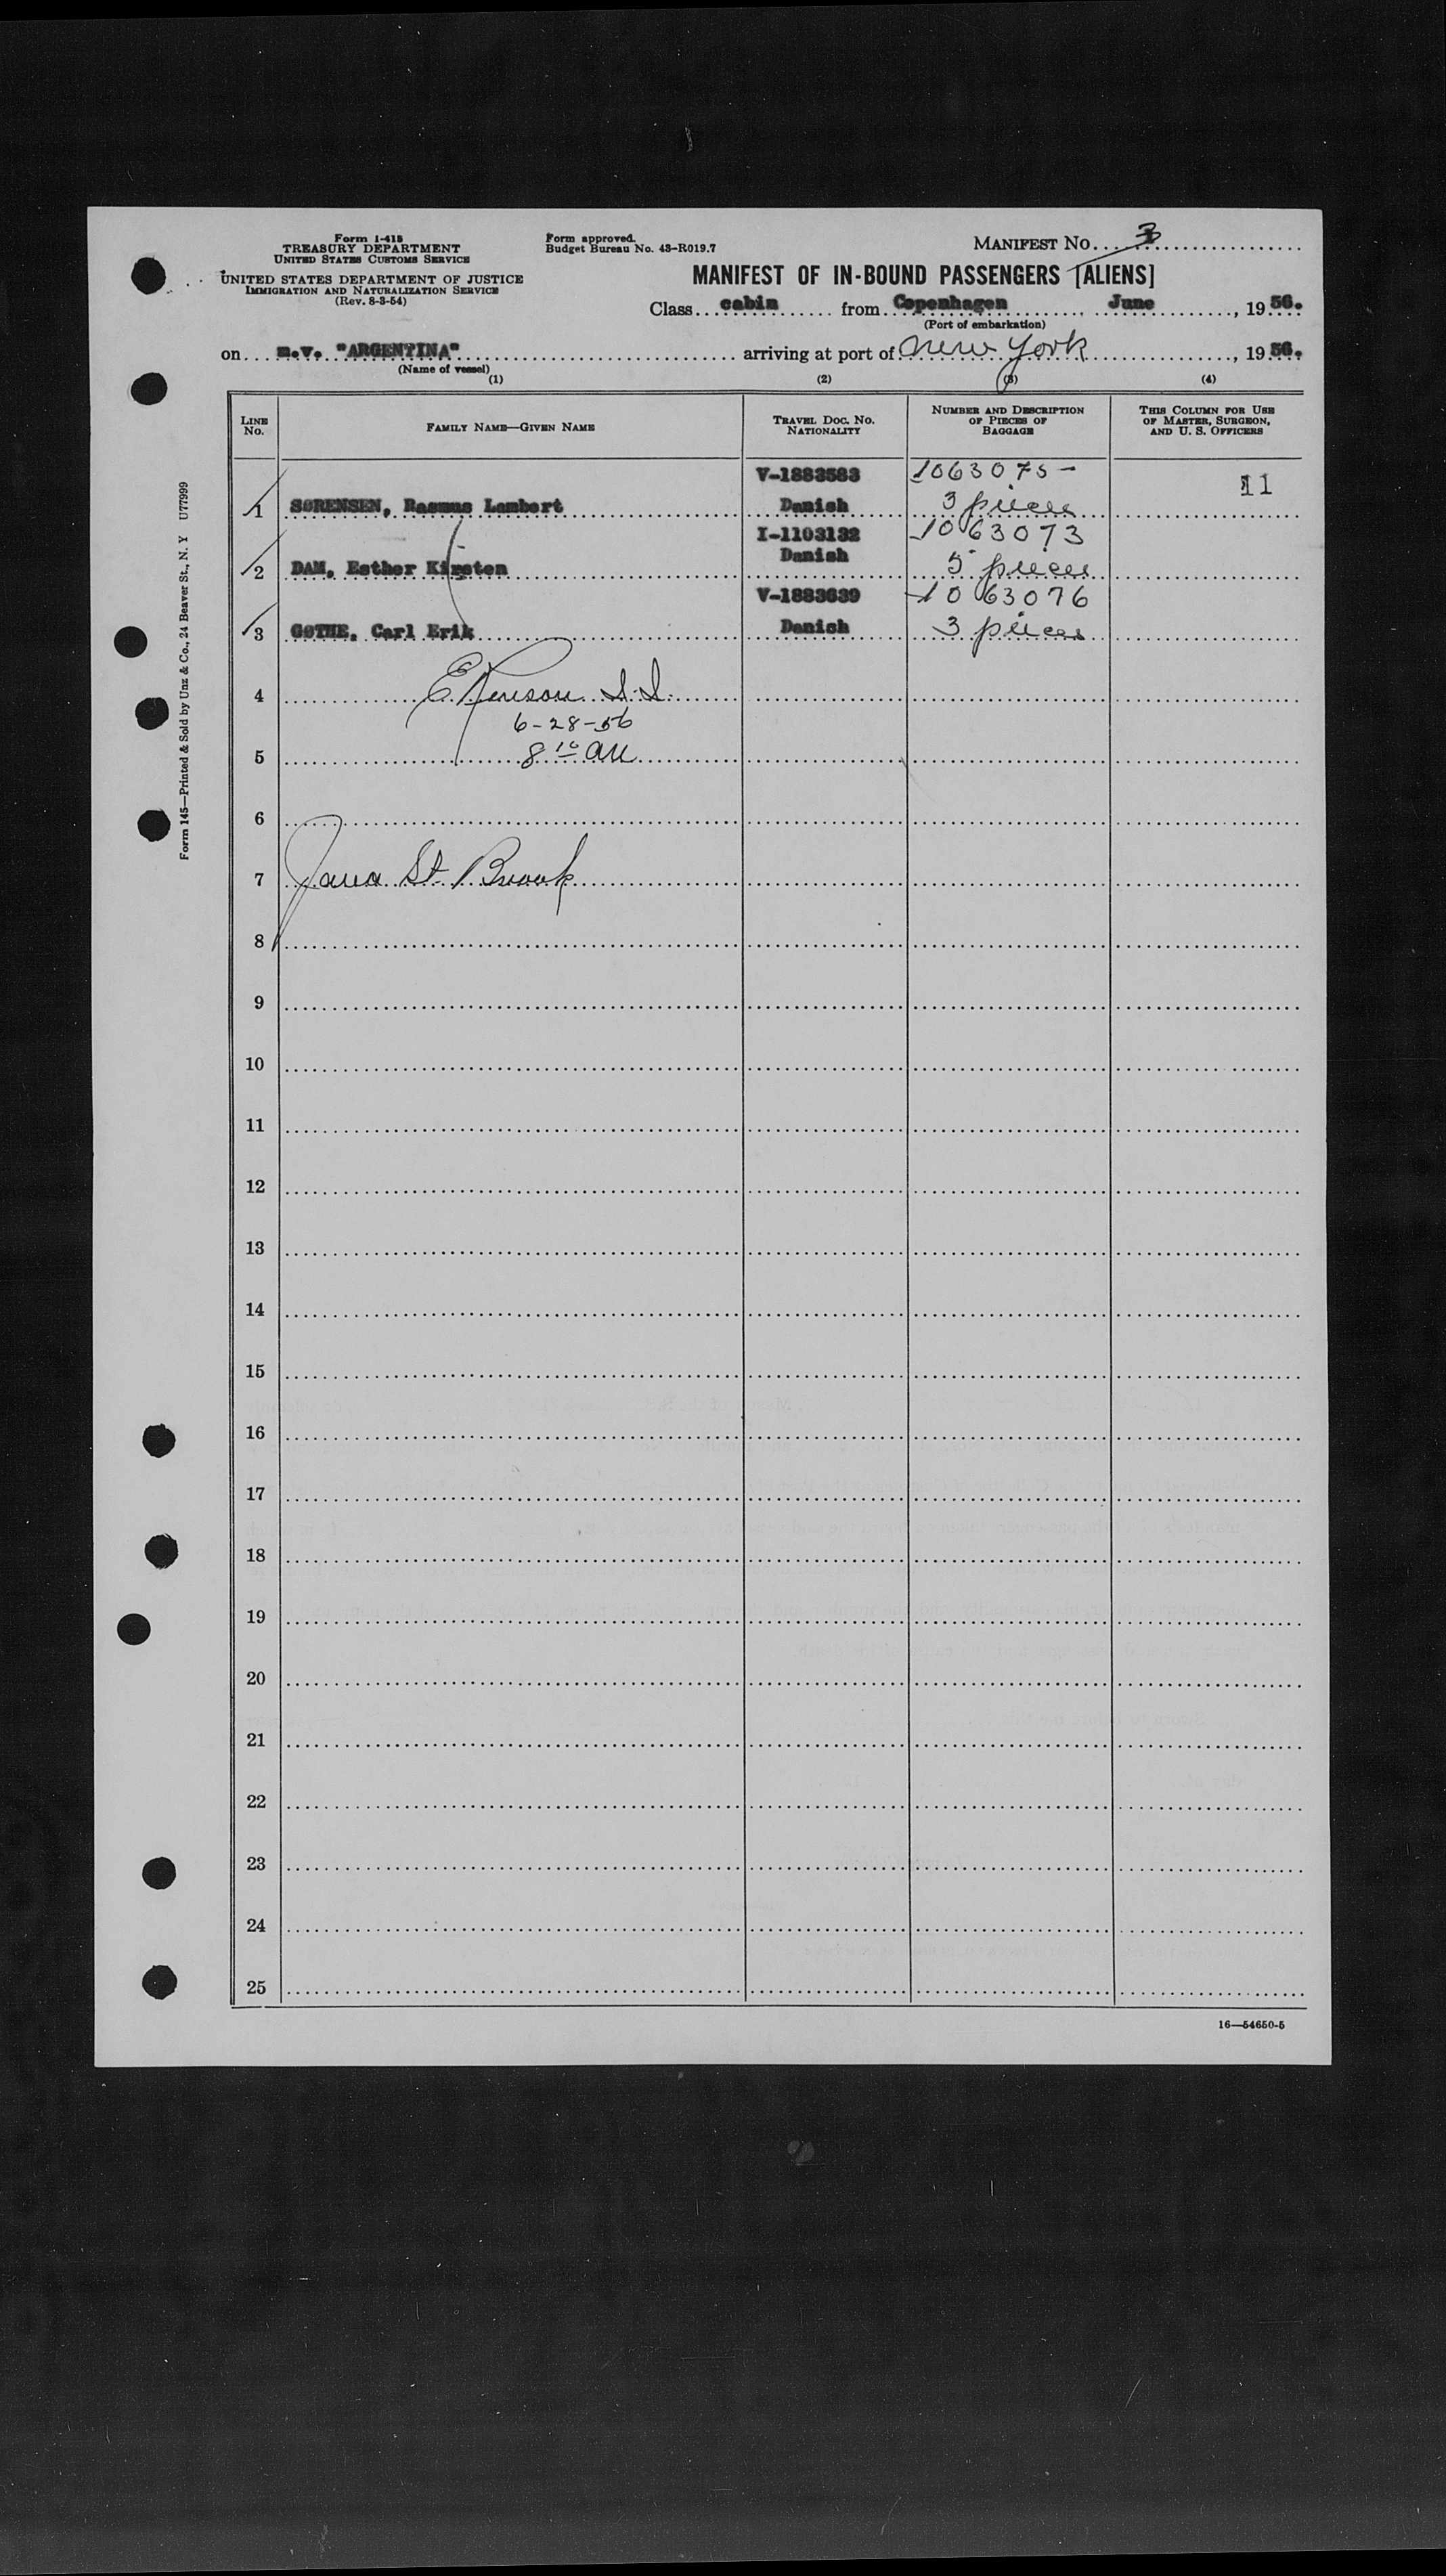 Form I-415
TREASURY DEPARTMENT
UNITED STATES CUSTOMS SERVICE
UNITED STATES DEPARTMENT OF JUSTICE
IMMIGRATION AND NATURALIZATION SERVICE
(Rev. 8-3-54)
Form approved.
Budget Bureau No. 43-R019.7
MANIFEST NO. 3
MANIFEST OF IN-BOUND PASSENGERS [ALIENS]
Class cabin from Copenhagen June, 1956.
(Port of embarkation)
on m.v. "ARGENTINA" arriving at port of New York, 1956.
(Name of vessel)
(1) (2) (3) (4)
LINE NO. FAMILY NAME—GIVEN NAME TRAVEL DOC. NO. NATIONALITY NUMBER AND DESCRIPTION OF PIECES OF BAGGAGE THIS COLUMN FOR USE OF MASTER, SURGEON, AND U. S. OFFICERS
V-1883583 1063075- 11
1 SØRENSEN, Rasmus Lambert Danish 3 pieces
I-1103132 1063073
2 DAM, Esther Kirsten Danish 5 pieces
V-1883639 1063076
3 GØTHE, Carl Erik Danish 3 pieces
4
6-28-56
5 8 10 AM
6
7 St.
8
9
10
11
12
13
14
15
16
17
18
19
20
21
22
23
24
25
16—54650-5
Form 145—Printed & Sold by Unz & Co., 24 Beaver St., N. Y U77999